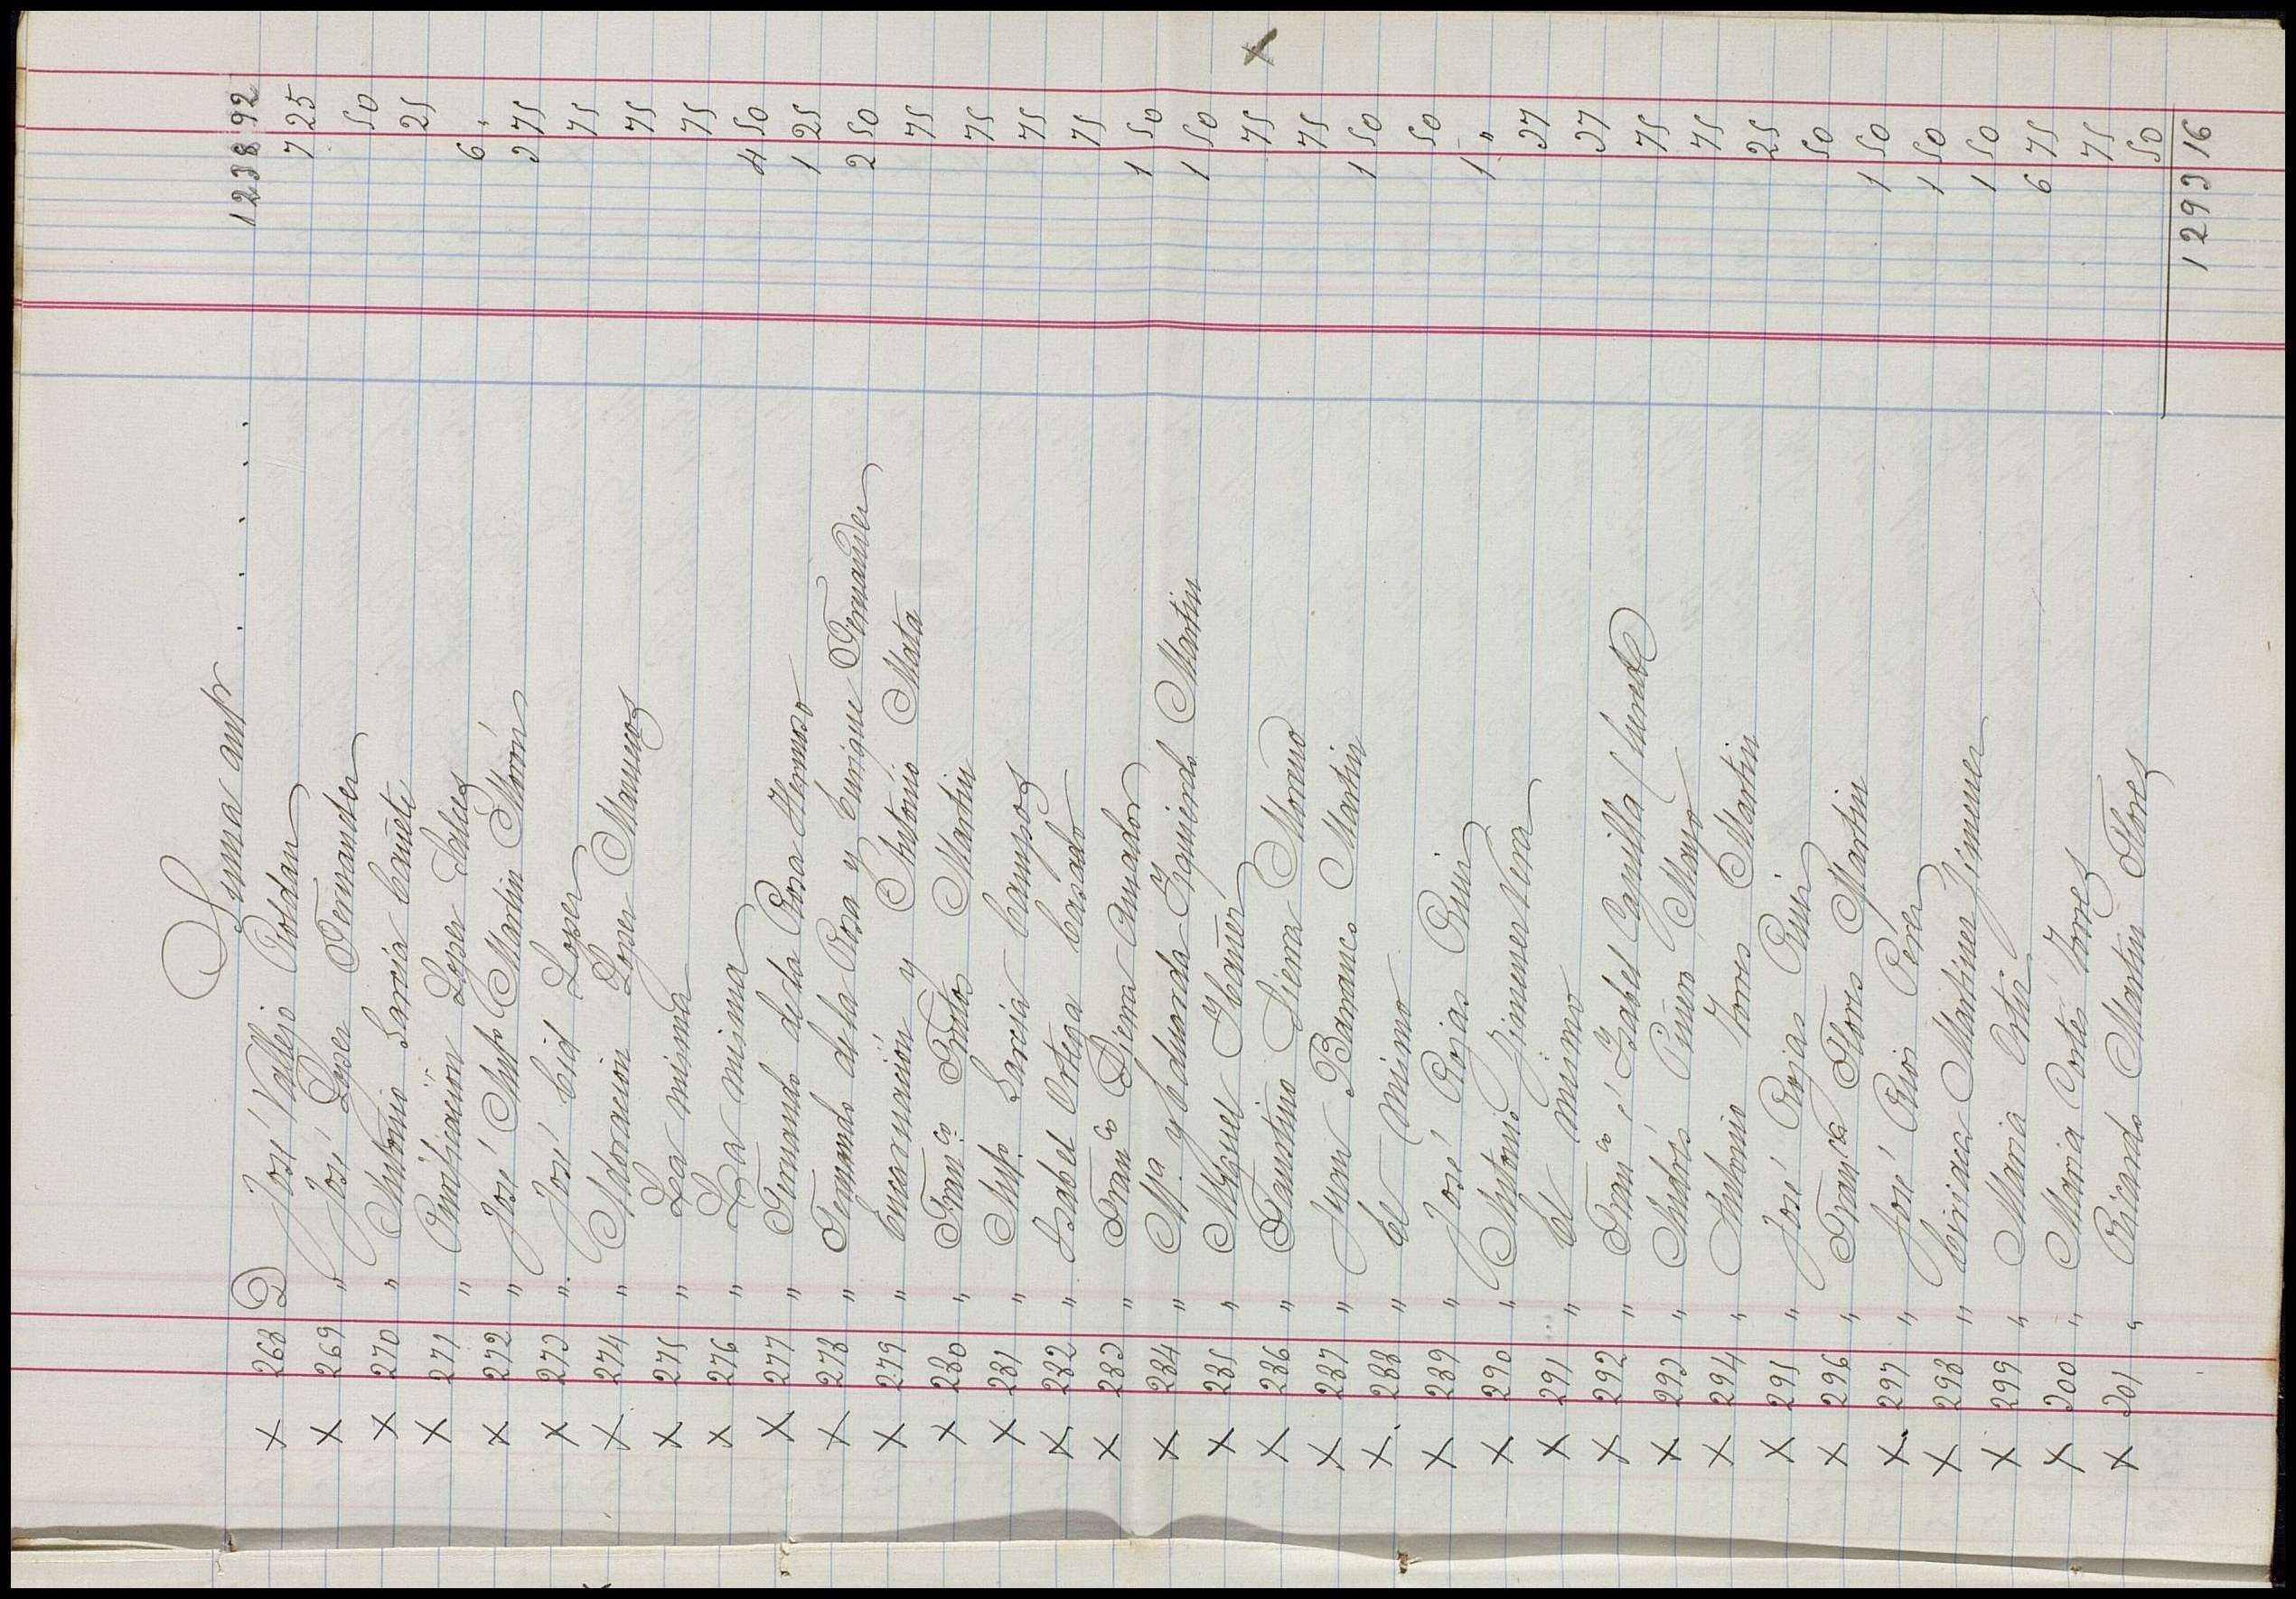 Suma antr . . . . . 1238 92
X 268 D José Vallejo Roldan 7 25
X 269 " José Lopez Fernandez 50
X 270 " Antonio Garcia Cañete 25
X 271 " Purificacion Lopez 6 "
X 272 " José Antº Martin Morón 3 75
X 273 " José Cid Lopez 75
X 274 " Adoracion Lopez Mamucos 75
X 275 " La misma 75
X 276 " La misma 4 50
X 277 " Fernando de la Rosa Hermoso 1 25
X 278 " Fernando de la Rosa y Enrique Fernandez 2 50
X 279 " Encarnación y Antonio Mata 75
X 280 " Franco Prados Martin 75
X 281 " Antº Garcia Campos 75
X 282 " Isabel Ortega Casado 75
X 283 " Franco Sierra Amador 1 50
X 284 " Mª y Eduarda Izquierdo Martin 1 50
X 285 " Miguel Ibañez 75
X 286 " Faustino Sierra Moreno 75
X 287 " Juan Barranco Martin 1 50
X 288 " El mismo 50
X 289 " José Rojas Ruiz 1 "
X 290 " Antonio Jimenez Vera 37
X 291 " El mismo 37
X 292 " Franco é Isabel Capilla 75
X 293 " Andrés 75
X 294 " Antonio Torres Martin 25
X 295 " José Rojas Ruiz 50
X 296 " Franca Flores Martin 1 50
X 297 " José Rios Perez 1 50
X 298 " Ciriaca Martinez Jimenez 1 50
X 299 " Maria Ortiz 6 75
X 300 " Maria Cortes Torres 75
X 301 " Ricardo Martin Flores 50
1293 16
X